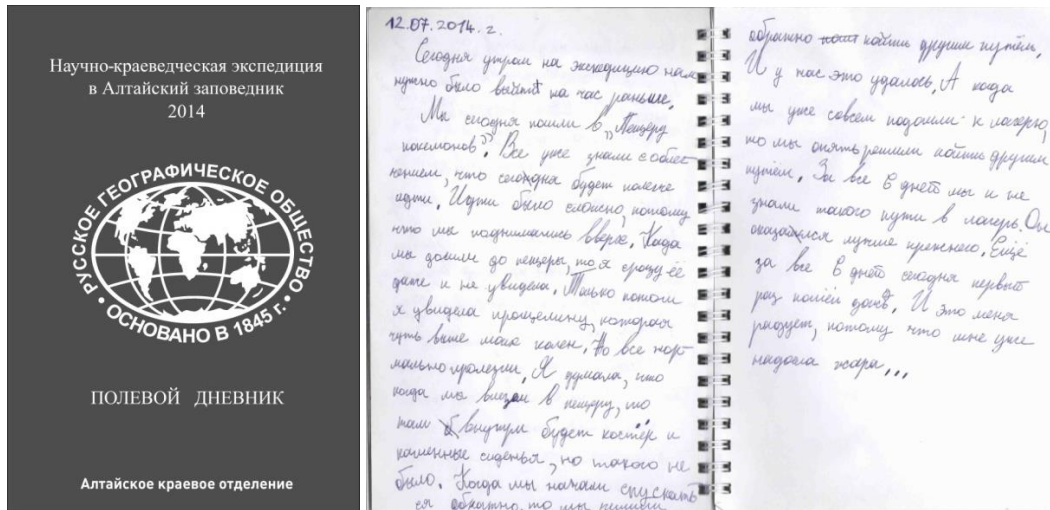 Научно-краеведческая экспедиция
в Алтайский заповедник
2014
РУССКОЕ ГЕОГРАФИЧЕСКОЕ ОБЩЕСТВО
• ОСНОВАНО В 1845 г. •
ПОЛЕВОЙ ДНЕВНИК
Алтайское краевое отделение
12.07.2014.г.
Сегодня утром на экспедицию нам
нужно было выйти на час раньше.
Мы сегодня пошли в „Пещеру
покемонов”. Все уже знали с облег
чением, что сегодня будет полегче
идти. Идти было сложно, потому
что мы поднимались вверх. Когда
мы дошли до пещеры, то я сразу её
даже и не увидела. Только потом
я увидела прощелину, которая
чуть выше моих колен. Но все нор
мально пролезли. Я думала, что
когда мы влезем в пещеру, то
там внутри будет костёр и
каменные сиденья, но такого не
было. Когда мы начали спускать
ся обратно, то мы решили
обратно пойти другим путём.
И у нас это удалось. А когда
мы уже совсем подошли к лагерю,
то мы опять решили пойти другим
путём. За все 6 дней мы и не
знали такого пути в лагерь. Он
оказался лучше прежнего. Ещё
за все 6 дней сегодня первый
раз пошёл дождь. И это меня
радует, потому что мне уже
надоела жара...